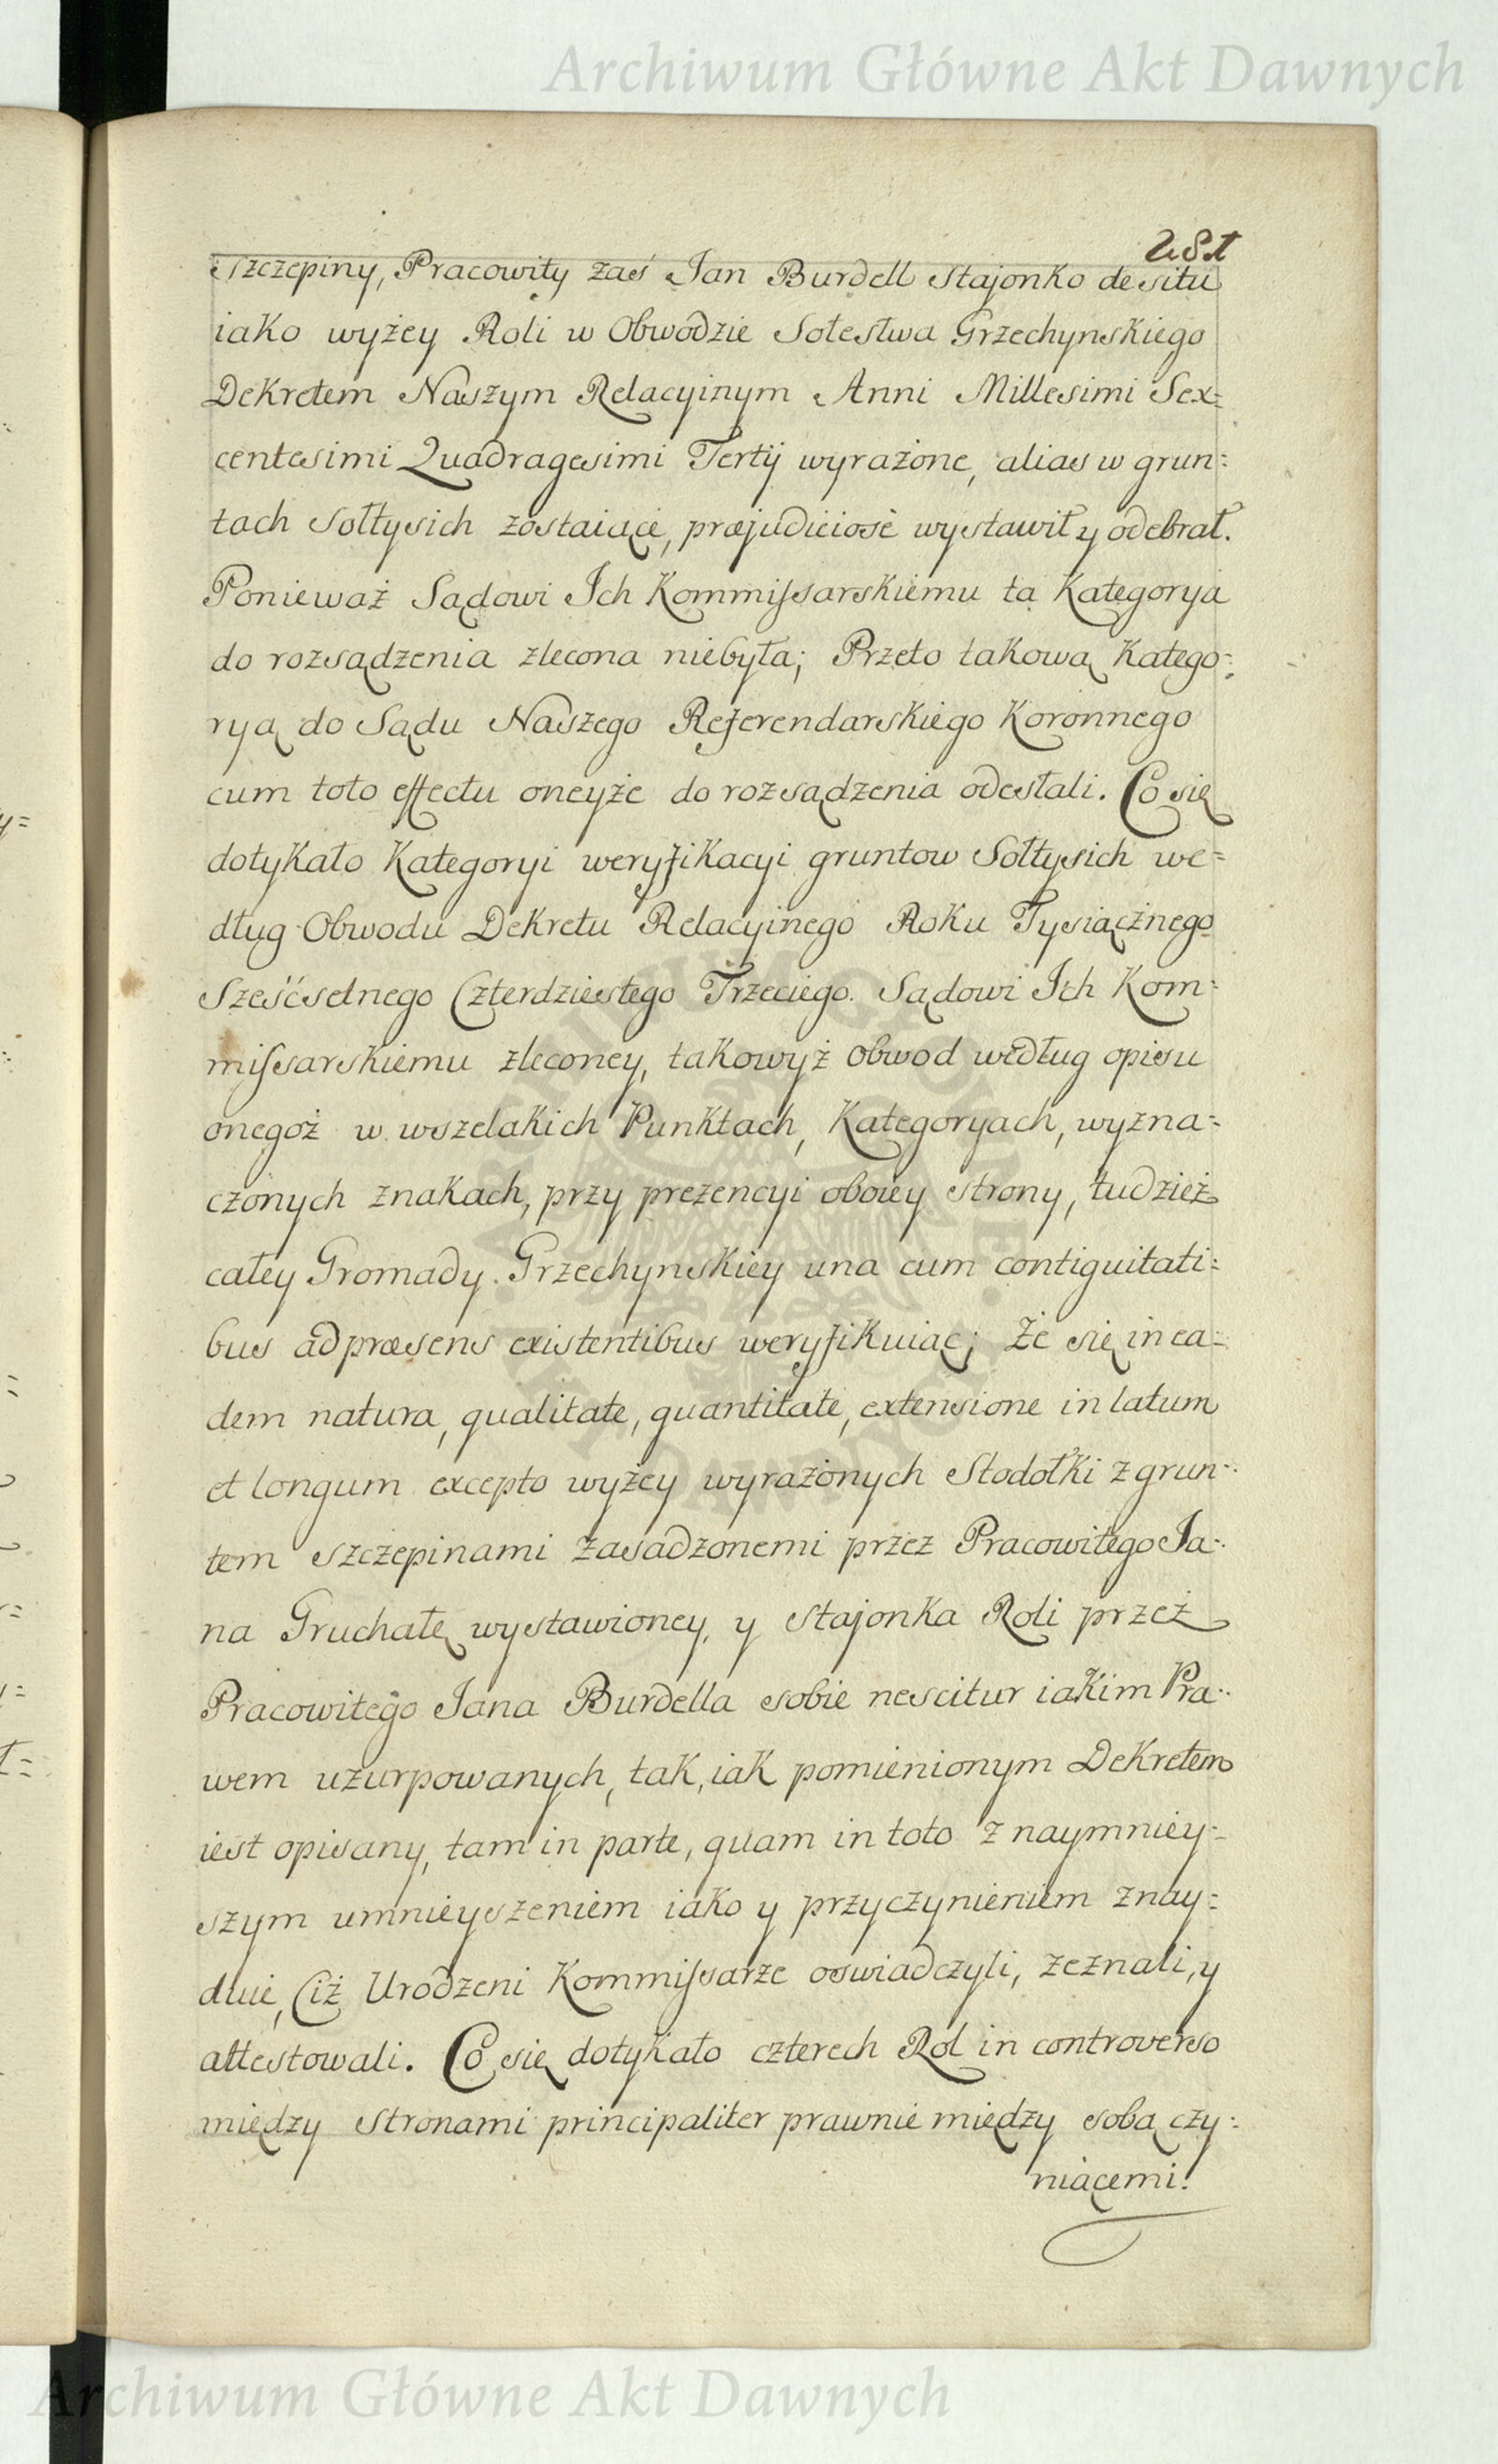 Archiwum Główne Akt Dawnych
281
Szczepiny, Pracowity zaś Jan Burdell Stajonko de situ
iako wyżey Roli w Obwodzie Sołestwa Grzechynskiego
Dekretem Naszym Relacyinym Anni Millesimi Sex=
centesimi Quadragesimi Tertij wyrażone, alias w grun=
tach Sołtysich zostaiące, præjudiciosè wystawił y odebrał.
Ponieważ Sądowi Ich Kommissarskiemu ta Kategorya
do rozsądzenia zlecona niebyła; Przeto takową Katego=
ryą do Sądu Naszego Referendarskiego Koronnego
cum toto effectu oneyże do rozsądzenia odesłali. Co się
dotykało Kategoryi weryfikacyi gruntow Sołtysich we=
dług Obwodu Dekretu Relacyinego Roku Tysiącznego
Sześćsetnego Czterdziestego Trzeciego. Sądowi Ich Kom=
missarskiemu zleconey, takowyż obwod według opisu
onegoż w wszelakich Punktach, Kategoryach, wyzna=
czonych znakach, przy prezencyi oboiey strony, tudzież
całey Gromady Grzechynskiey una cum contiguitati=
bus ad præsens existentibus weryfikuiąc; Że się in ea=
dem natura, qualitate, quantitate, extensione in latum
et longum excepto wyżey wyrażonych Stodołki z grun=
tem szczepinami zasadzonemi przez Pracowitego Ja=
na Gruchałę wystawioney, y Stajonka Roli przez
Pracowitego Jana Burdella sobie nescitur iakim Pra=
wem uzurpowanych, tak, iak pomienionym Dekretem
iest opisany, tam in parte, quam in toto z naymniey=
szym umnieyszeniem iako y przyczynieniem znay=
duie, Ciż Urodzeni Kommissarze oswiadczyli, zeznali, y
attestowali. Co się dotykało czterech Rol in controverso
między Stronami principaliter prawnie między sobą czy=
niącemi.
Archiwum Główne Akt Dawnych